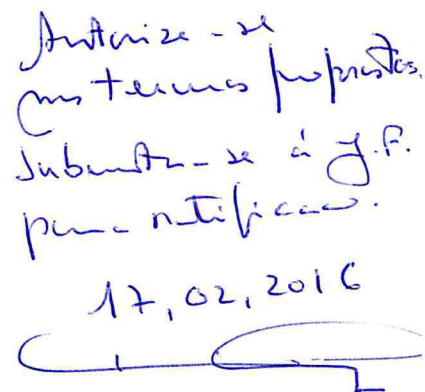 Autorize-se
nos termos propostos.
Submeta-se à J.F.
para notificação.
17,02,2016